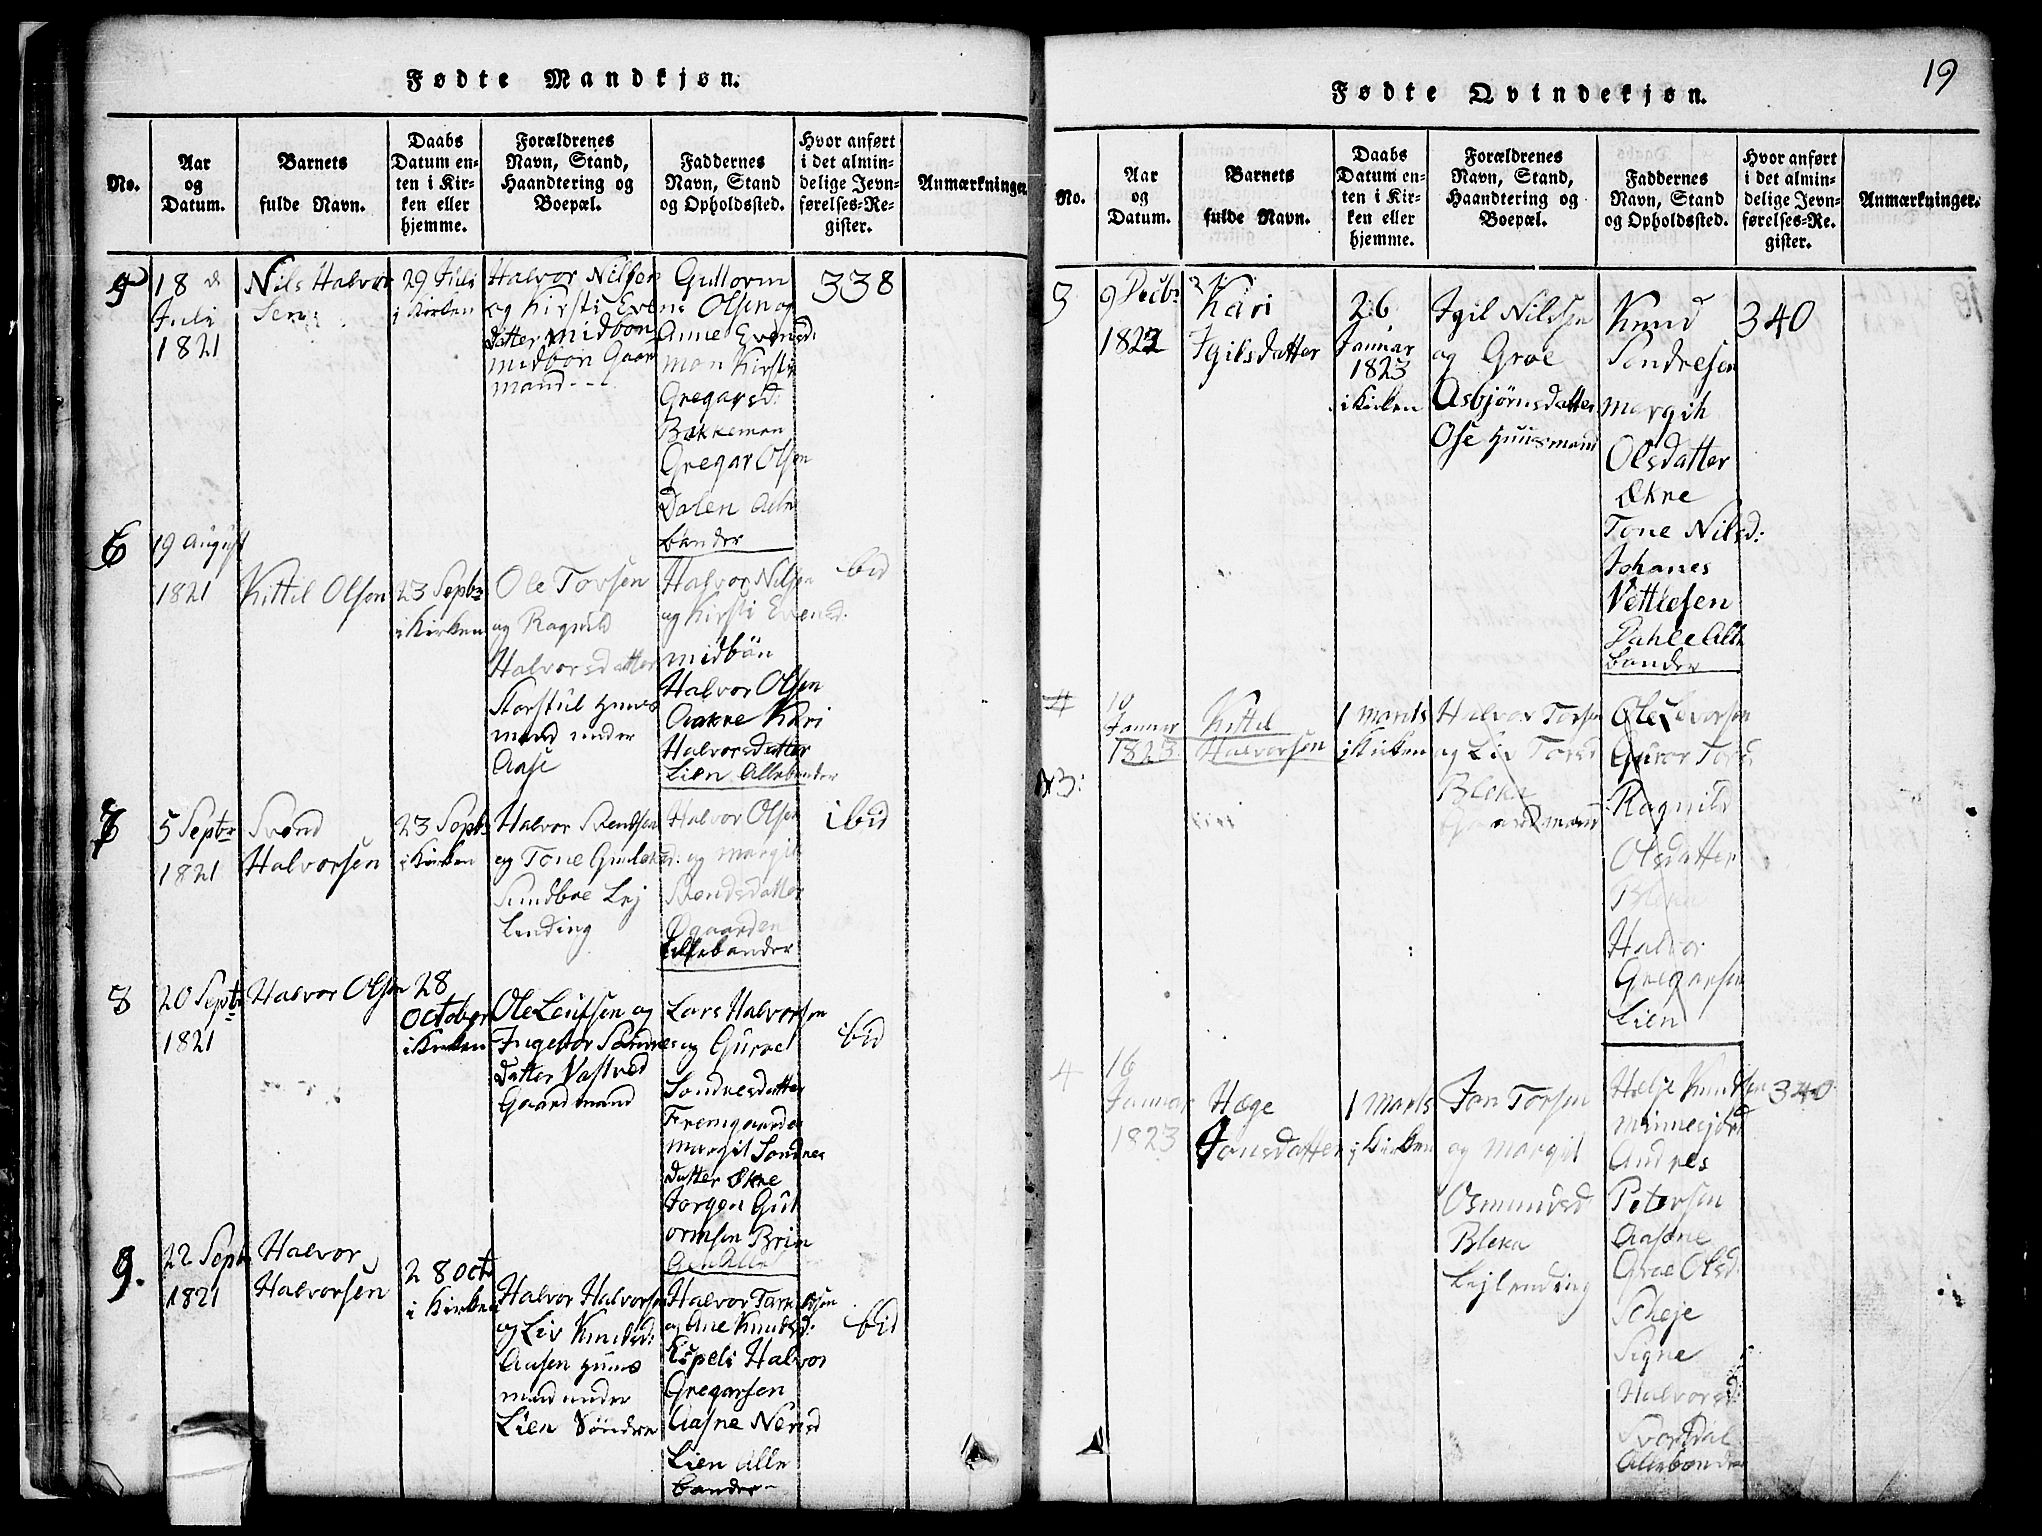 Fødte Mandkjøn.
No.
Aar
og
Datum.
Barnets
fulde Navn.
Daabs
Datum en-
ten i Kir-
ken eller
hjemme.
Forældrenes
Navn, Stand,
Haandtering og
Boepæl.
Faddernes
Navn, Stand
og Opholdssted.
Hvor anført
i det almin-
delige Jevn-
førelses-Re-
gister.
Anmærkninger
18 d
Juli
1821
Nils Halvor
Sen:
29 Juli
i Kirken
Halvor Nilsen
og Kirsti Evens
datter Midbøn
midbøn Gaar
mand
Guttorm
Olsen og
Anne Evensd:
moen Kirsti
Gregarsd:
Bakkemoen
Gregar Olsen
Dalen Alle
bønder
338
6
19 August
1821
Kittil Olsen
23 Septbr
i Kirken
Ole Torsen
og Ragnild
Halvorsdatter
Storstul Huus
mand under
Aase
Halvor Nilsen
og Kirsti Evensd.
midbön
Halvor Olsen
Aakre Kari
Halvorsdatter
Lien Allebønder
ibid
7
5 Septbr
1821
Svend
Halvorsen
23 Septbr
i Kirken
Halvor Svendsen
og Tone Gunleksd:
Sundboe Lej
Lending
Halvor Olsen
og Margit
Svendsdatter
Øgaarden
Allebønder
ibid
8
20 Septbr
1821
Halvor Olsen
28
October
i Kirken
Ole Leufsen og
Ingebor Søndres
datter Vastved
Gaardmand
Lars Halvorsen
og Gurroe
Sondresdatter
Fremgaarden
Margit Sondres
datter Ekre
Jorgen Gut
ormsen Brin
gen Alle
ibid
9.
22 Septbr
1821
Halvor
Halvorsen
28 octr
i Kirken
Halvor Halvorsen
og Liv Knudsd:
Aasen Huus
mand under
Lien Söndre
Halvor Tarkelsen
og Ane Knudsd:
Espeli Halvor
Gregarsen
Aasne Nerisd
Lien Alle
bønder
ibid
19
Fødte Qvindekjøn.
No.
Aar
og
Datum.
Barnets
fulde Navn.
Daabs
Datum en-
ten i Kir-
ken eller
hjemme.
Forældrenes
Navn, Stand,
Haandtering og
Boepæl.
Faddernes
Navn, Stand
og Opholdssted.
Hvor anført
i det almin-
delige Jevn-
førelses-Re-
gister.
Anmærkninger.
3
9 Decbr
1822
Kari
Igilsdatter
26
Januar
1823
i Kirken
Igil Nilssen
og Groe
Asbjørnsdatter
Ose Huusmand
Knud
Sondresen
Margit
Olsdatter
Ekre
Tone Nilsd:
Johanes
Vetlesen
Dahle Alle
bønder
340
4
10
Januar
1823
Kittil
Halvorsen
1 Marts
i Kirken
Halvor Torsen
og Liv Torsd
Bleka
Gaardmand
Ole Levorsen
Guror Torsd
Ragnild
Olsdatter
Bleka
Halvor
Gregarsen
Lien
4
16
Januar
1823
Hæge
Jonsdatter
1 Marts
i Kirken
Jon Torsen
og Margit
Osmundsd
Bleka
Lejlending
Helje Knudsen
Minnesjord
Andres
Petersen
Aasne
Groe Olsd.
Scheje
Signe
Halvorsd:
Svartdal
Allebønder
340